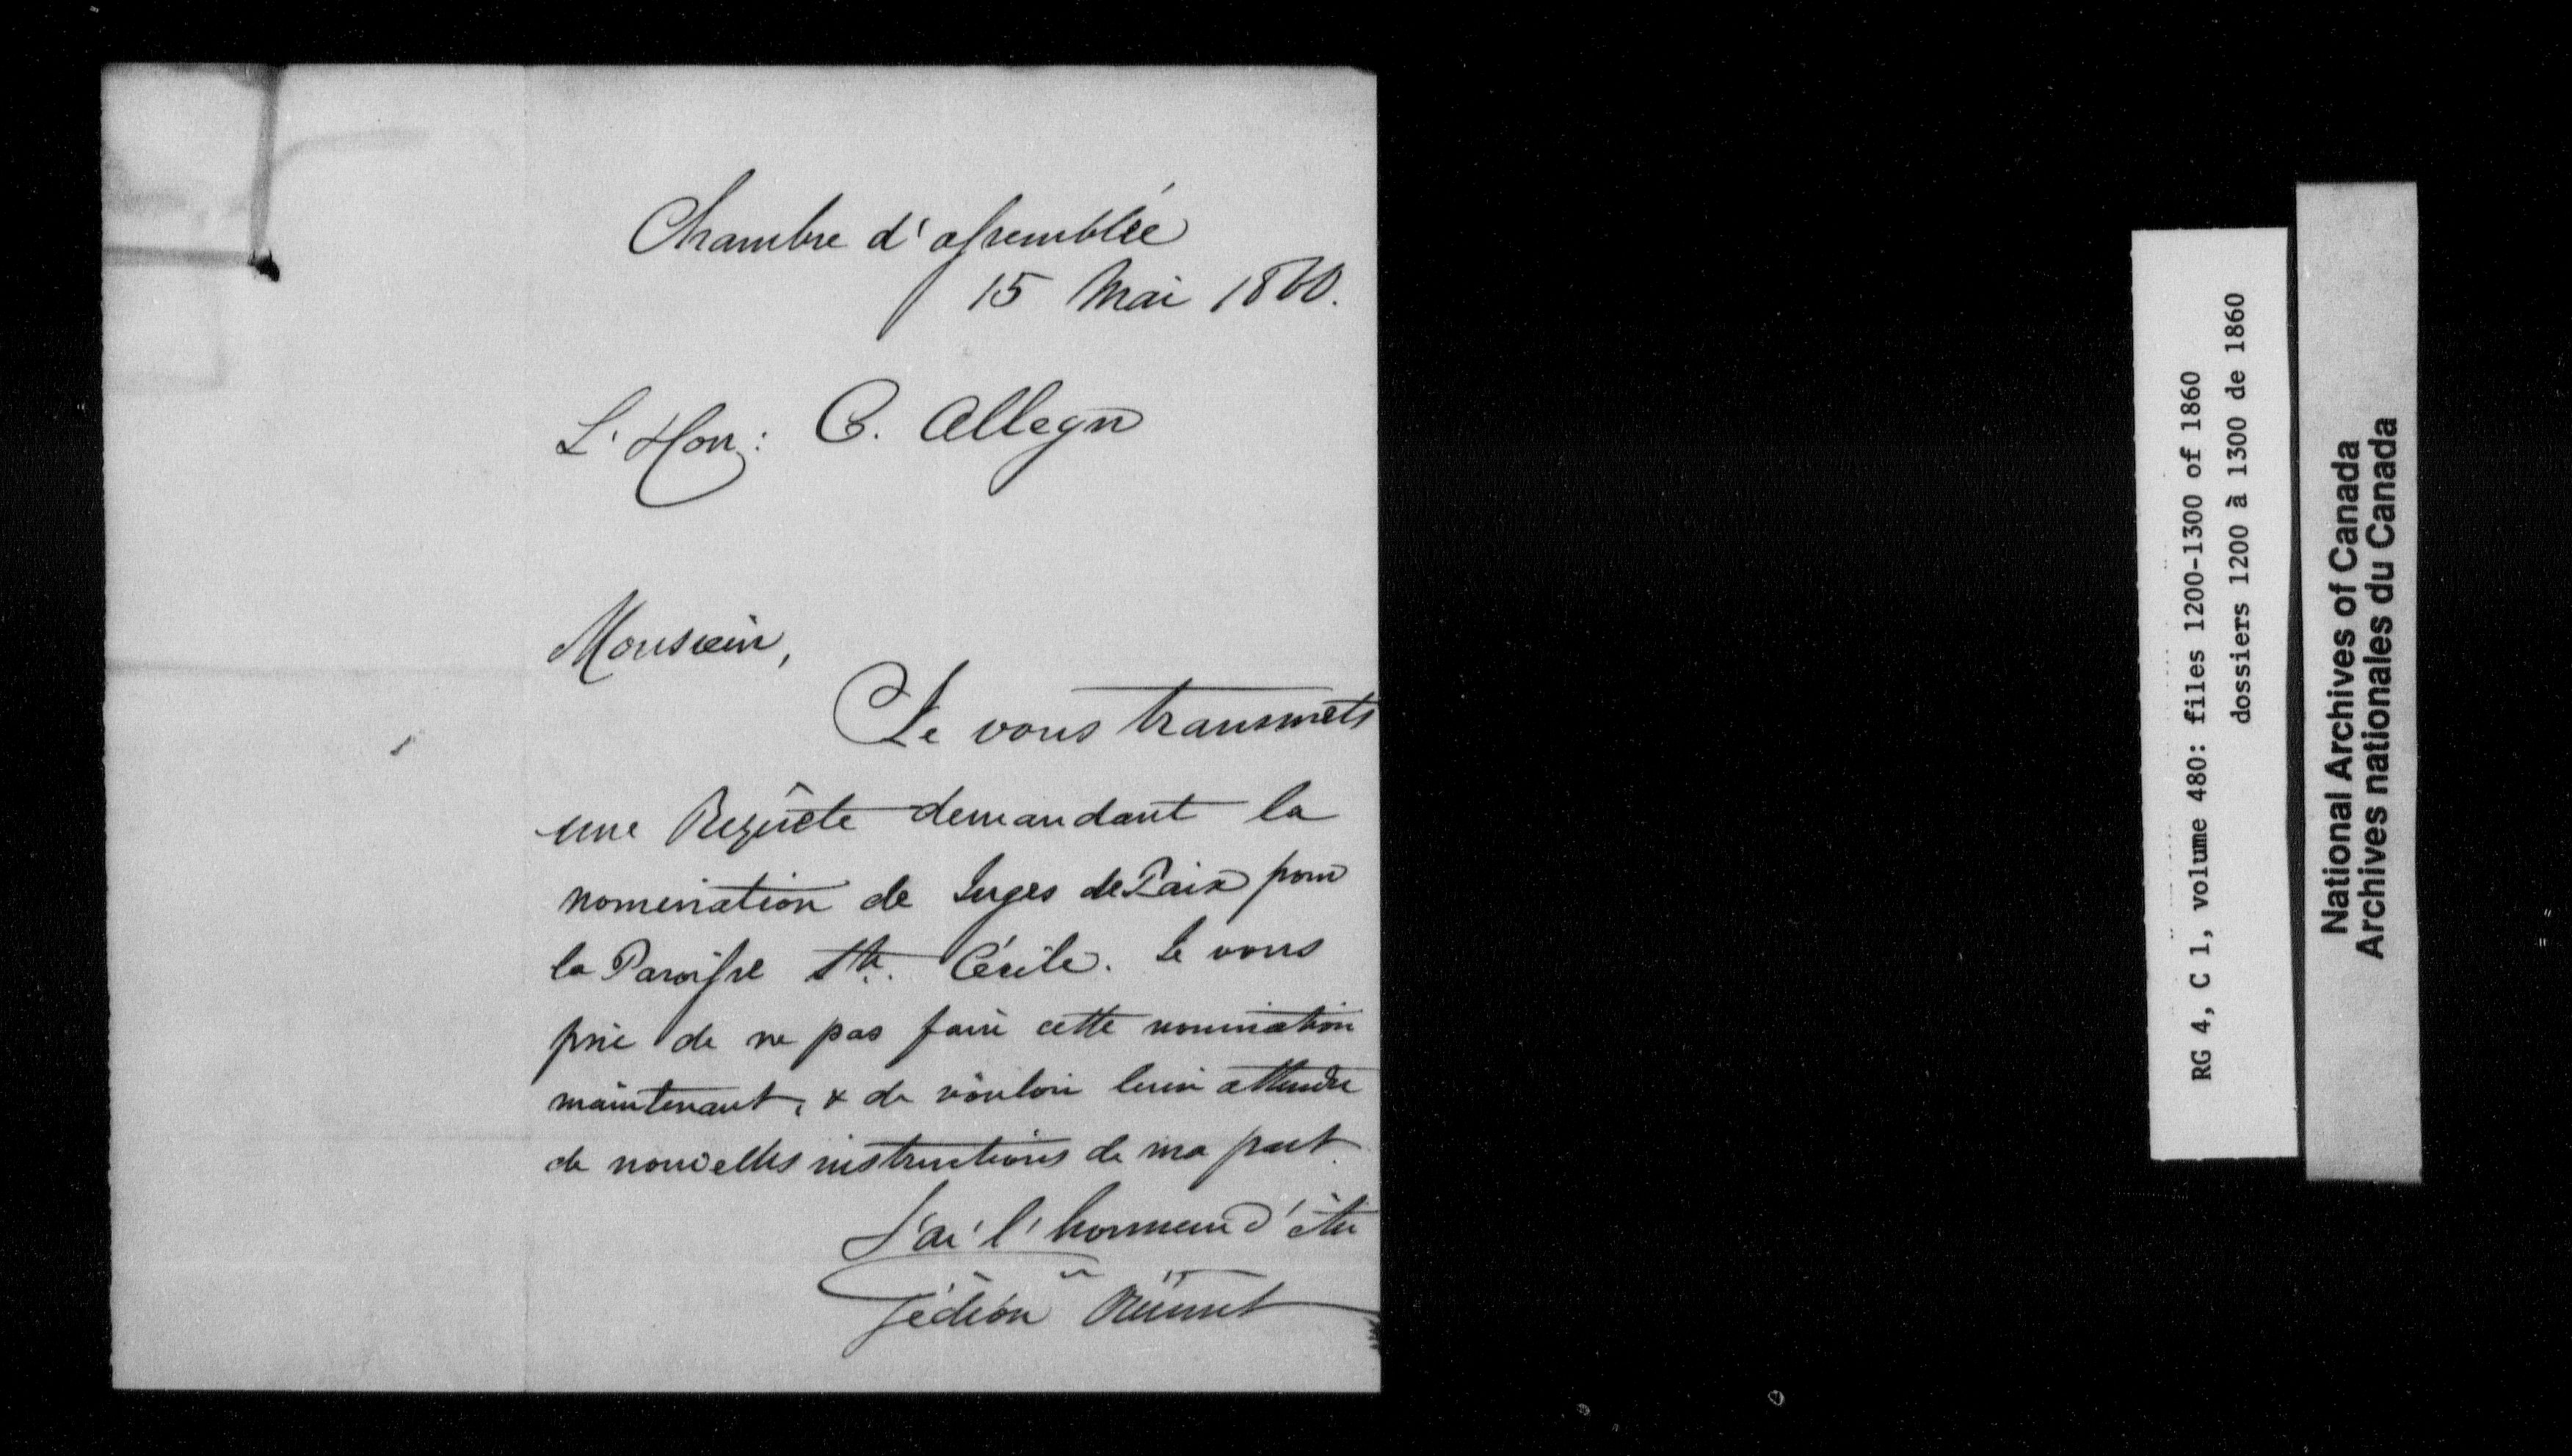 Chambre d'assemblée
15 Mai 1860.
L'Hon: C. Alleyn
Monsieur,
Je vous transmets
une Requête demandant la
nomination de Juges de Paix pour
la Paroisse Ste. Cécile. Je vous
prie de ne pas faire cette nomination
maintenant, & de vouloir bien attendre
de nouvelles instructions de ma part.
J'ai l'honneur d'être
Gédéon Ouimet
RG 4, C 1, volume 480: files 1200-1300 of 1860
dossiers 1200 à 1300 de 1860
National Archives of Canada
Archives nationales du Canada